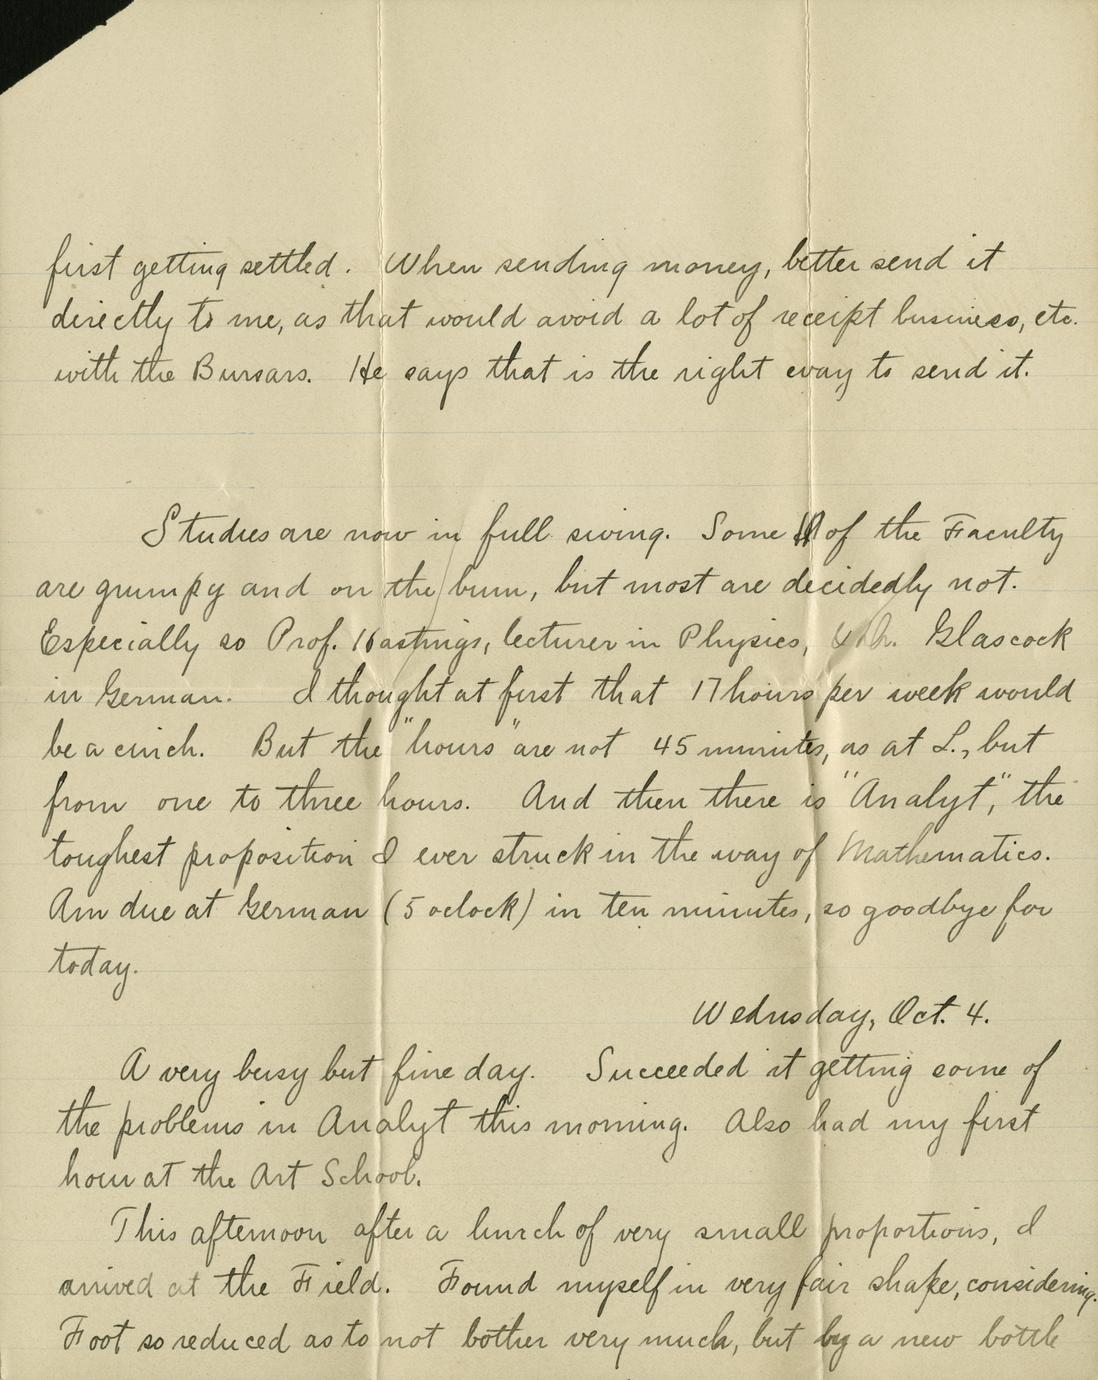 first getting settled. When sending money, better send it
directly to me, as that would avoid a lot of receipt business, etc.
with the Bursars. He says that is the right way to send it.
Studies are now in full swing. Some of the Faculty
are grumpy and on the bum, but most are decidedly not.
Especially so Prof. Hastings, lecturer in Physics, Glascock
in German. I thought at first that 17 hours per week would
be a cinch. But the "hours" are not 45 minutes, as at L., but
from one to three hours. And then there is "Analyt", the
toughest proposition I ever struck in the way of Mathematics.
Am due at German (5 oclock) in ten minutes, so goodbye for
today.
Wednsday, Oct. 4.
A very busy but fine day. Succeeded it getting some of
the problems in Analyt this morning. Also had my first
hour at the Art School.
This afternoon after a lunch of very small proportions, I
arrived at the Field. Found myself in very fair shape, considering.
Foot so reduced as to not bother very much, but by a new bottle